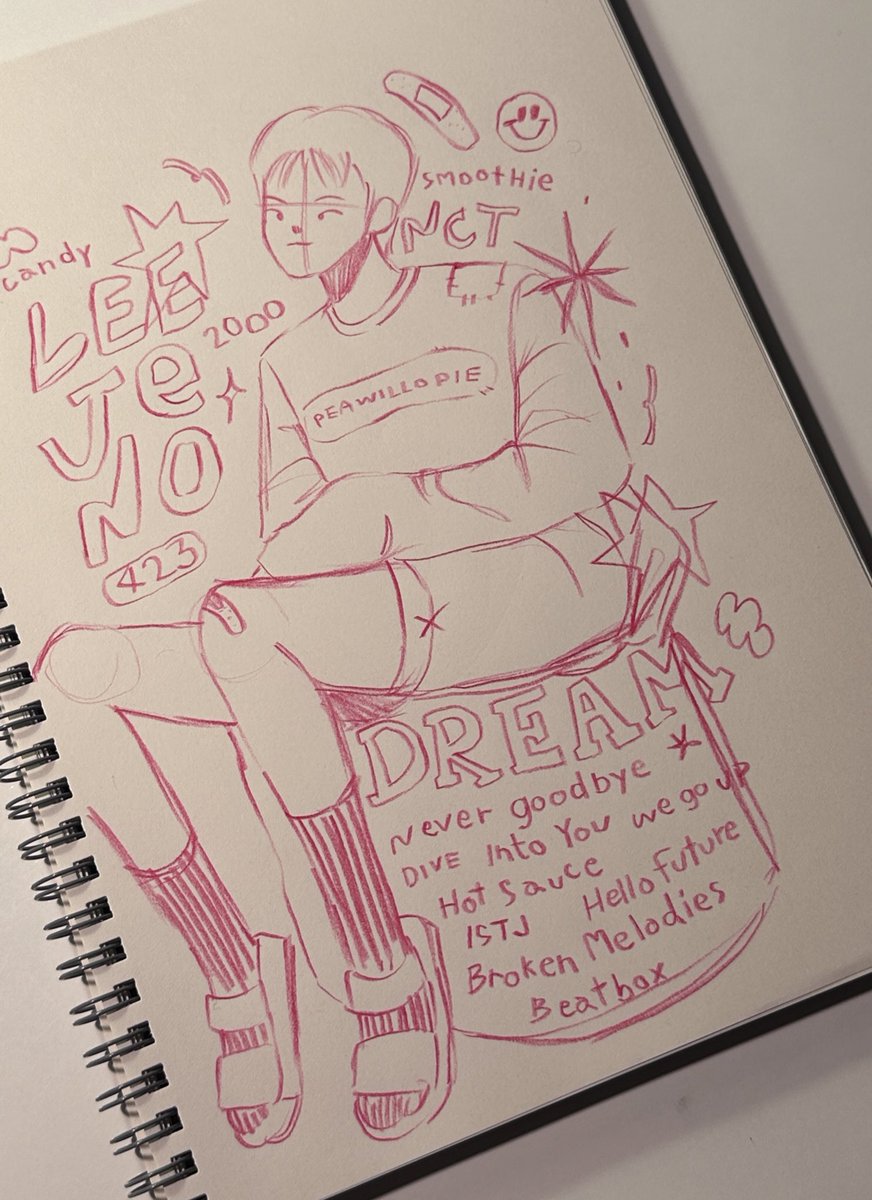 smootHie
NCT
candy
LEE
2000
Je
NO
PEAWILLOPIE
423
DREAM
Never goodbye
DIVE Into You we go up
Hot Sauce
Hello Future
ISTJ
Broken Melodies
Beatbox